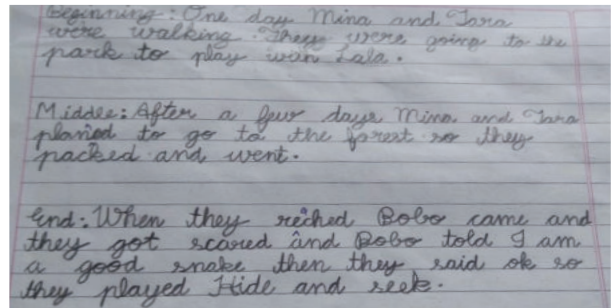 Beginning: One day Mina and Tara
were walking. They were going to the
park to play wian Lala.
Middle: After a few days Mina and Tara
planed to go to the forest so they
packed and went.
End: When they reched Bobo came and
they got scared and Bobo told I am
a good snake then they said ok so
they played Hide and seek.